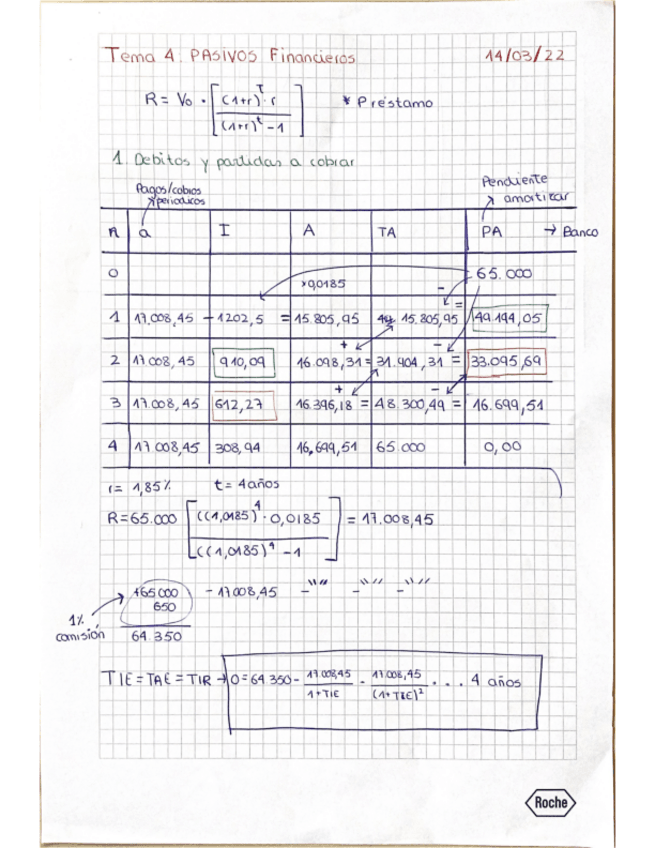 Tema 4: PASIVOS Financieros 14/03/22
R = Vo · [ (1+r)^t · r / (1+r)^t - 1 ] * Préstamo
1. Debitos y partidas a cobrar
Pagos/cobros periodicos
Pendiente amortizar
n a I A TA PA → Banco
0 65.000
×0,0185 -
1 17.008,45 - 1202,5 = 15.805,95 15.805,95 = 49.194,05
+ -
2 17.008,45 910,09 16.098,31 = 31.904,31 = 33.095,69
+ -
3 17.008,45 612,27 16.396,18 = 48.300,49 = 16.699,51
4 17.008,45 308,94 16,699,51 65.000 0,00
r = 1,85% t = 4 años
R = 65.000 [ ((1,0185)^4 · 0,0185 / ((1,0185)^4 - 1 ] = 17.008,45
+65000 - 17008,45 - "" - "" - ""
650
1% comisión
64.350
TIE = TAE = TIR → 0 = 64.350 - 17.008,45 / 1+TIE - 17.008,45 / (1+TIE)^2 . . . 4 años
Roche